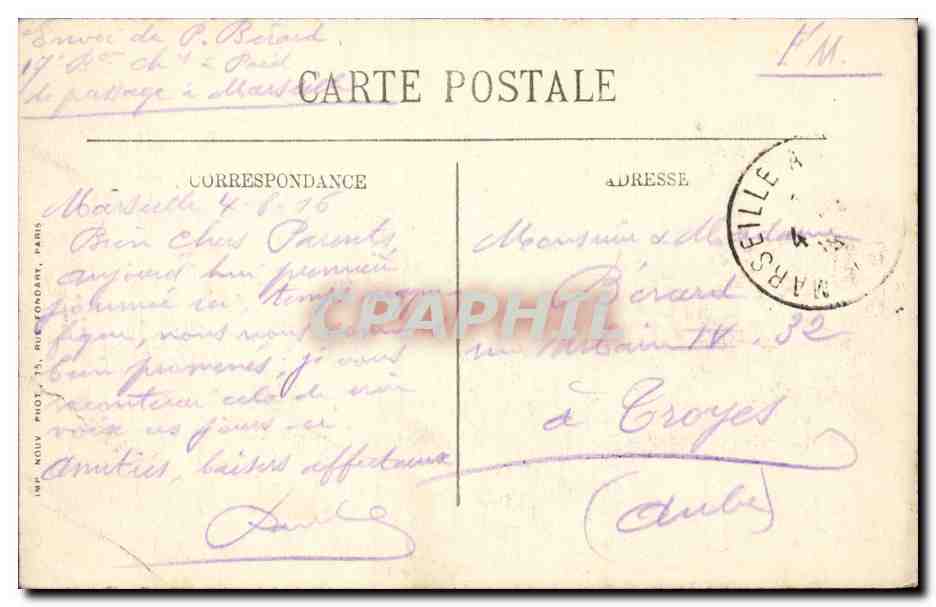 Envoi de P. Bérard
de passage à Marseille
F.M.
CARTE POSTALE
CORRESPONDANCE
ADRESSE
Marseille 4-8-16
Bien chers Parents,
aujourd'hui première
journée ici, temps
nous nous
bien promenés, je vous
raconterai cela de vive
voix ces jours-ci.
Amitiés, baisers affectueux
Monsieur & Madame
Bérard
rue Urbain IV. 32
à Troyes
(Aube)
MARSEILLE A
4
IMP. NOUV. PHOT., 15, RUE FONDARY, PARIS
CPAPHIL